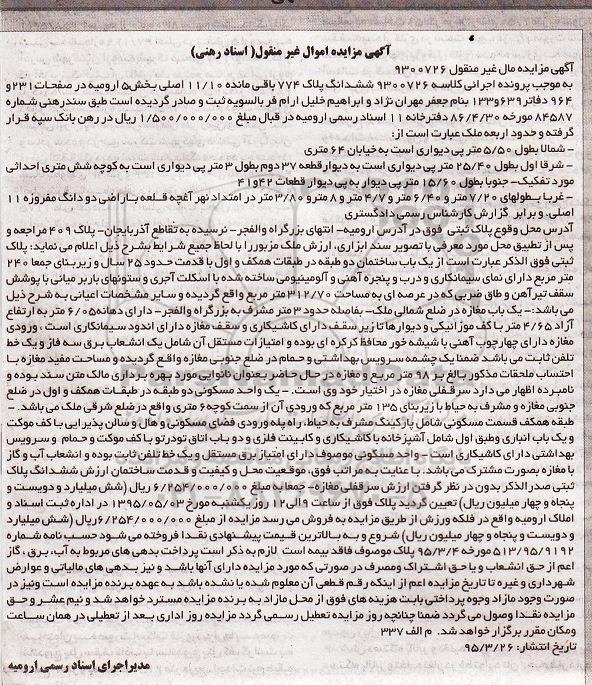 آگهی مزایده اموال غیر منقول( اسناد رهنی)
آگهی مزایده مال غیر منقول ۹۳۰۰۷۲۶
به موجب پرونده اجرائی کلاسه ۹۳۰۰۷۲۶ ششدانگ پلاک ۷۷۴ باقی مانده ۱۱/۱۰ اصلی بخش۵ ارومیه در صفحات۲۳۱ و
۹۶۴ دفاتر۶۳۹و۱۳۳ بنام جعفر مهران نژاد و ابراهیم خلیل ارام فر بالسویه ثبت و صادر گردیده است طبق سندرهنی شماره
۸۴۵۸۷ مورخه ۸۶/۴/۳۰ دفترخانه ۱۱ اسناد رسمی ارومیه در قبال مبلغ ۱/۵۰۰/۰۰۰/۰۰۰ ریال در رهن بانک سپه قرار
گرفته و حدود اربعه ملک عبارت است از:
- شمالا بطول ۵/۵۰ متر پی دیواری است به خیابان ۶۴ متری
- شرقا اول بطول ۲۵/۴۰ متر پی دیواری است به دیوار قطعه ۳۷ دوم بطول ۳ متر پی دیواری است به کوچه شش متری احداثی
مورد تفکیک- جنوبا بطول ۱۵/۶۰ متر پی دیوار به پی دیوار قطعات ۴۲و۴۱
- غربا بطولهای ۷/۲۰ متر و ۶/۴۰ متر و ۴/۷ متر و ۸ مترو ۳/۸۰ متر در امتداد نهر آغچه قلعه باراضی دو دانگ مفروزه ۱۱
اصلی. و برابر گزارش کارشناس رسمی دادگستری
آدرس محل وقوع پلاک ثبتی فوق در آدرس ارومیه- انتهای بزرگراه والفجر- نرسیده به تقاطع آذربایجان- پلاک ۴۰۹ مراجعه و
پس از تطبیق محل مورد معرفی با تصویر سند ابرازی، ارزش ملک مزبور را با لحاظ جمیع شرایط بشرح ذیل اعلام می نماید: پلاک
ثبتی فوق الذکر عبارت است از یک باب ساختمان دو طبقه در طبقات همکف و اول با قدمت حدود ۲۵ سال و زیربنای جمعا ۲۴۰
متر مربع دارای نمای سیمانکاری و درب و پنجره آهنی و آلومینیومی ساخته شده با اسکلت آجری و ستونهای باربر میانی با پوشش
سقف تیرآهن و طاق ضربی که در عرصه ای به مساحت ۳۱۲/۷۰متر مربع واقع گردیده و سایر مشخصات اعیانی به شرح ذیل
می باشد:- یک باب مغازه در ضلع شمالی ملک- بفاصله حدود ۳ متر مشرف به بزرگراه والفجر- دارای دهانه۶/۰۵ متر به ارتفاع
آزاد ۴/۶۵ متر با کف موزائیکی و دیوارها تا زیر سقف دارای کاشیکاری و سقف مغازه دارای اندود سیمانکاری است ، ورودی
مغازه دارای چهارچوب آهنی با شیشه خور محافظ کرکره ای بوده و امتیازات مستقل آن شامل یک انشعاب برق سه فاز و یک خط
تلفن ثابت می باشد ضمنا یک چشمه سرویس بهداشتی و حمام در ضلع جنوبی مغازه واقع گردیده و مساحت مفید مغازه با
احتساب ملحقات مذکور بالغ بر ۹۸ متر مربع و مغازه در حال حاضر بعنوان نانوایی مورد بهره برداری مالک متن سند بوده و
نامبرده اظهار می دارد سرقفلی مغازه در اختیار خود وی است. - یک واحد مسکونی دو طبقه در طبقات همکف و اول در ضلع
جنوبی مغازه و مشرف به حیاط با زیربنای ۱۳۵ متر مربع که ورودی آن از سمت کوچه۶ متری واقع در ضلع شرقی ملک می باشد. -
طبقه همکف قسمت مسکونی شامل پارکینگ مشرف به حیاط، راه پله ورودی فضای مسکونی و هال و سالن پذیرایی با کف موکت
و یک باب انباری وطبق اول شامل آشپزخانه با کاشیکاری و کابینت فلزی و دو باب اتاق نودرتو با کف موکت و حمام و سرویس
بهداشتی دارای کاشیکاری است - واحد مسکونی موصوف دارای امتیاز برق مستقل و یک خط تلفن ثابت بوده و انشعاب آب و گاز
با مغازه بصورت مشترک می باشد. با عنایت به مراتب فوق، موقعیت محل و کیفیت و قدمت ساختمان ارزش ششدانگ پلاک
ثبتی صدر الذکر بدون در نظر گرفتن ارزش سرقفلی مغازه- جمعا به مبلغ ۶/۲۵۴/۰۰۰/۰۰۰ ریال (شش میلیارد و دویست و
پنجاه و چهار میلیون ریال) تعیین گردید پلاک فوق از ساعت ۹الی ۱۲ روز یکشنبه مورخ ۱۳۹۵/۰۵/۰۳ در اداره ثبت اسناد و
املاک ارومیه واقع در فلکه ورزش از طریق مزایده به فروش می رسد مزایده از مبلغ ۶/۲۵۴/۰۰۰/۰۰۰ریال (شش میلیارد
و دویست و پنجاه و چهار میلیون ریال) شروع و به بالاترین قیمت پیشنهادی نقدا فروخته می شود حسب نامه شماره
۵۱۳/۹۵/۹۱۹۲ مورخه ۹۵/۳/۴ پلاک موصوف فاقد بیمه است لازم به ذکر است پرداخت بدهی های مربوط به آب، برق ، گاز
اعم از حق انشعاب و یا حق اشتراک ومصرف در صورتی که مورد مزایده دارای آنها باشد و نیز بدهی های مالیاتی و عوارض
شهرداری و غیره تا تاریخ مزایده اعم از اینکه رقم قطعی آن معلوم شده یا نشده باشد به عهده برنده مزایده است ونیز در
صورت وجود مازاد وجوه پرداختی بابت هزینه های فوق از محل مازاد به برنده مزایده مسترد خواهد شد و نیم عشر و حق
مزایده نقدا وصول می گردد ضمنا چنانچه روز مزایده تعطیل رسمی گردد مزایده روز اداری بعد از تعطیلی در همان ساعت
ومکان مقرر برگزار خواهد شد. م الف ۳۳۷
تاریخ انتشار: ۹۵/۳/۲۶
مدیر اجرای اسناد رسمی ارومیه